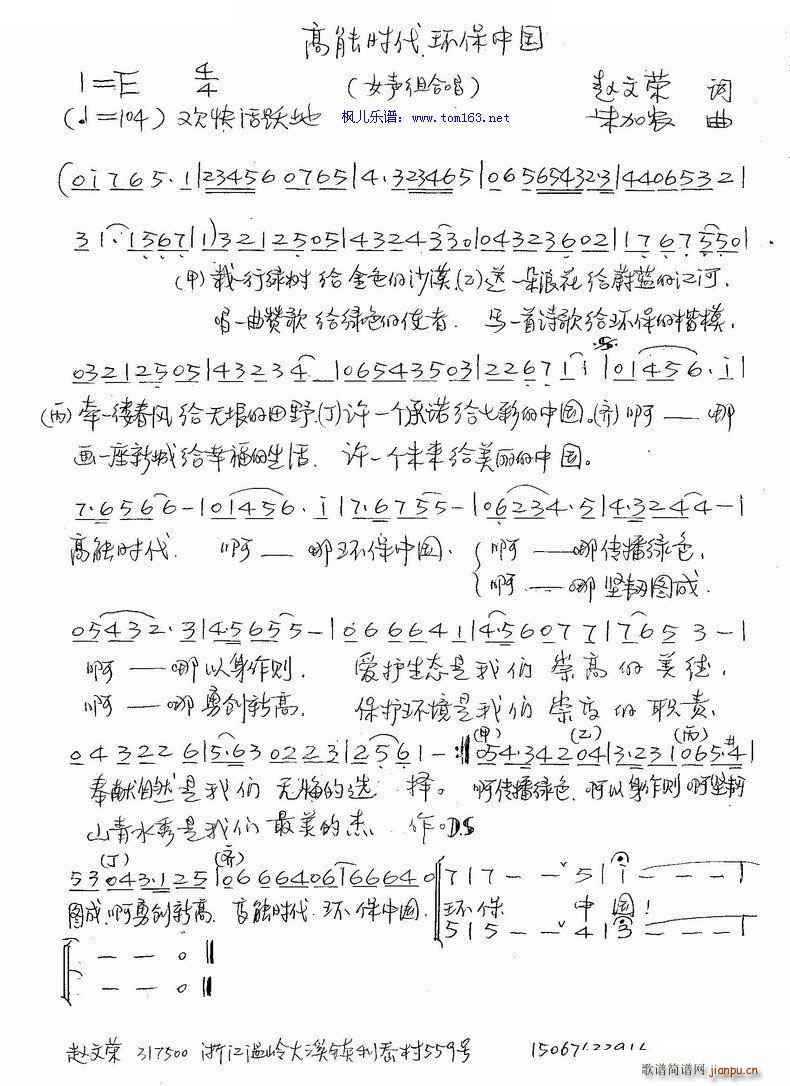 高能时代 环保中国
1=E 4/4 (女声组合唱) 赵文荣 词
(♩=104) 欢快活跃地 枫儿乐谱：www.tom163.net 朱加农 曲
(0i765·1|23456 0765|4·323465|06565432·3|44065321|
31·1567|1)3212505|43243330|04323602|1767550|
(甲)栽一行绿树 给金色的沙漠,(乙)送一朵浪花 给蔚蓝的江河,
唱一曲赞歌 给绿色的使者. 写一首诗歌给环保的楷模,
03212505|43234_|06543503|22671i|01456·i|
(丙)牵一缕春风 给无垠的田野,(丁)许一个承诺给七彩的中国。(齐)啊——哪
画一座新城给幸福的生活. 许一个未来给美丽的中国。
7·6566-|01456·i|7·6755-|06234·5|4·3244-|
高能时代. 啊——哪环保中国. 啊——哪传播绿色,
啊——哪坚韧图成.
05432·3|4·5655-|066641|4·56077|7653-|
啊——哪以身作则. 爱护生态是我们 崇高的美德,
啊——哪勇创新高. 保护环境是我们 崇高的职责,
(甲) (乙) (丙)
043226|5·630223|2561-:‖054·34204|3·231065·#4|
奉献自然是我们 无悔的选 择。 啊传播绿色, 啊以身作则 啊坚韧
山青水秀是我们 最美的杰 作。DS
(丁) (齐)
53043·125|0666406166640|717--˅5|i---|
图成,啊勇创新高. 高能时代 环保中国. 环保 中国!
515--˅4|3---|
--0‖
--0‖
赵文荣 317500 浙江温岭大溪镇利岙村559号
歌谱简谱网 jianpu.cn